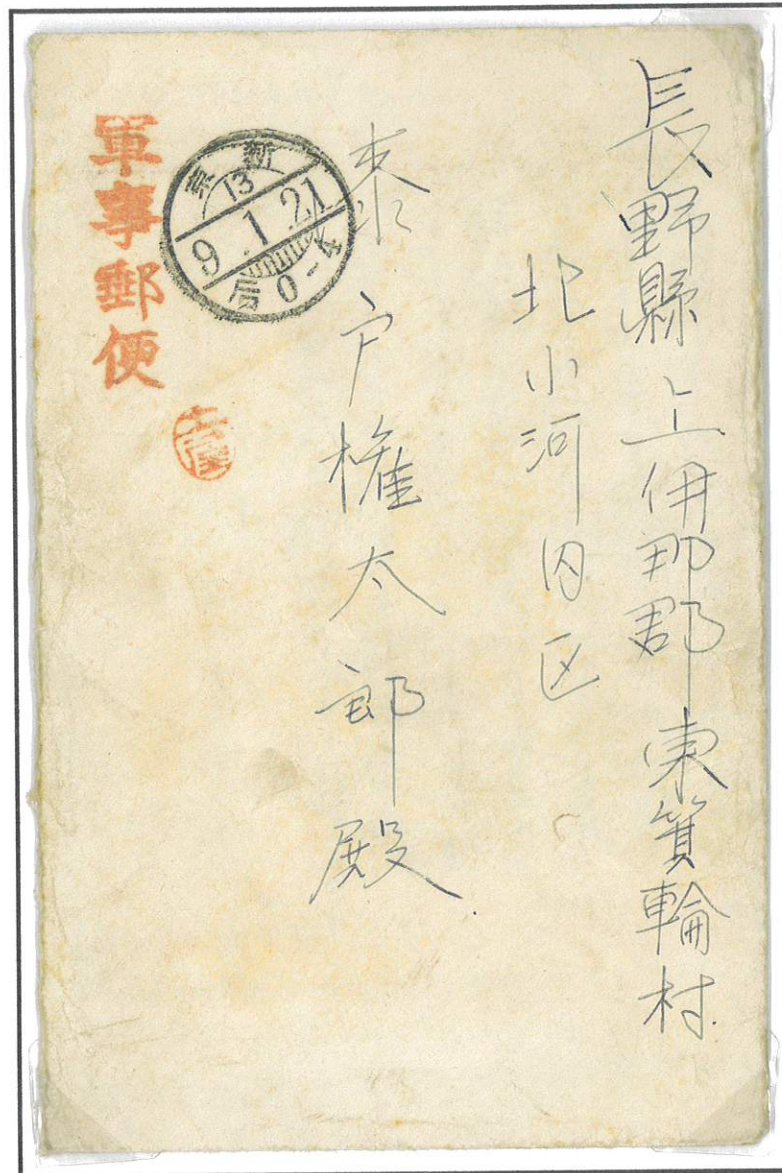 長野縣上伊那郡東箕輪村
北小河内区
戸権太郎殿
軍事郵便
新京
13
9.1.21
后0-4